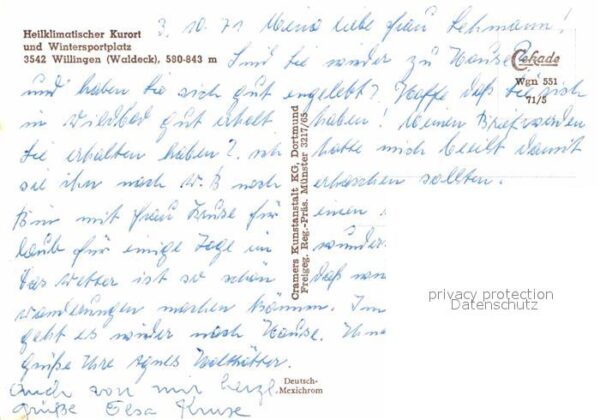 Heilklimatischer Kurort
und Wintersportplatz
3542 Willingen (Waldeck), 580-843 m
3. 10. 71 Meine liebe Frau Lehmann!
Sind sie wieder zu Hause
und haben Sie sich gut eingelebt? Hoffe daß Sie sich
in Wildbad gut erholt haben! Meinen Brief werden
Sie erhalten haben? ich hatte mich beeilt damit
sie ihn noch W. B noch erhaschen sollten.
Bin mit Frau Kruse für einen
laub für einige Tage in wunder
Das Wetter ist so schön daß
wanderungen machen können. Im
geht es wieder nach Hause.
grüße Ihre Agnes
Auch von mir herzl.
grüße Elsa Kruse
Cekade
Wgn 551
71/5
Cramers Kunstanstalt KG, Dortmund
Freigeg. Reg.-Präs. Münster 3217/65
Deutsch-
Mexichrom
privacy protection
Datenschutz